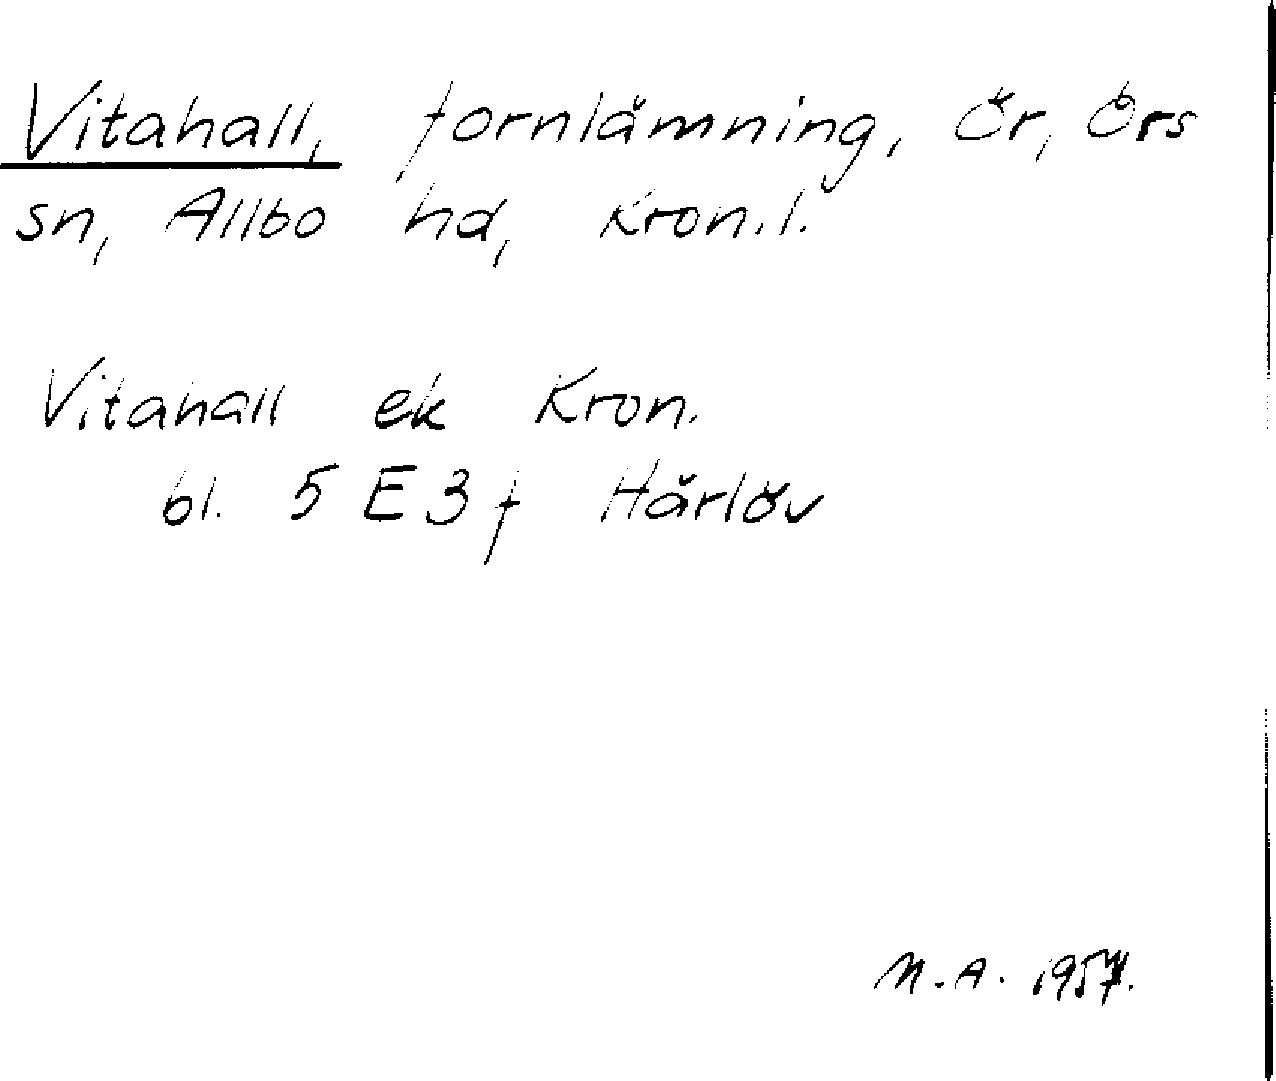 Vitahall, fornlämning, Ör, Örs
sn, Allbo hd, Kron.l.
Vitahall ek Kron.
bl. 5 E 3 f Härlöv
N.A. 1957.